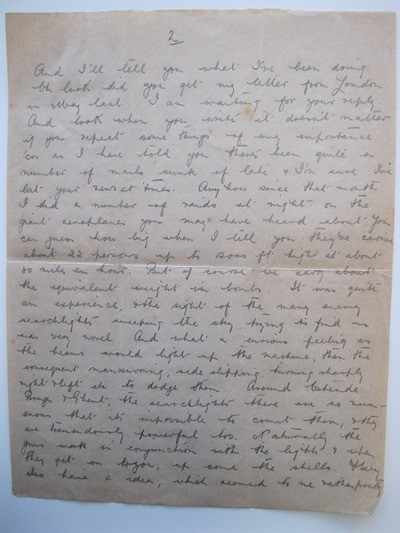 2
And I'll tell you what I've been doing.
Oh look did you get my letter from London
in May last. I am waiting for your reply
And look when you write it doesn't matter
if you repeat some things of any importance
for as I have told you there's been quite a
number of mails sunk of late & I'm sure I've
lost your news at times. Anyhow since that month
I did a number of raids at night on the
giant aeroplanes you may have heard about. You
can guess how big when I tell you they've carried
about 22 persons up to 5000 ft high at about
80 miles an hour. But of course we carry about
the equivalent weight in bombs. It was quite
an experience, & the sight of the many enemy
searchlights sweeping the sky, trying to find us
was very novel. And what a curious feeling as
the beams would light up the machine, then the
consequent manœuvring, side slipping, turning sharply
right & left etc to dodge them. Around Ostende
Bruges & Ghent, the searchlights there are so num-
erous that it's impossible to count them, & they
are tremendously powerful too. Naturally the
guns work in conjunction with the lights & when
they get on to you, up come the shells. They
also have a idea, which seemed to me rather pretty